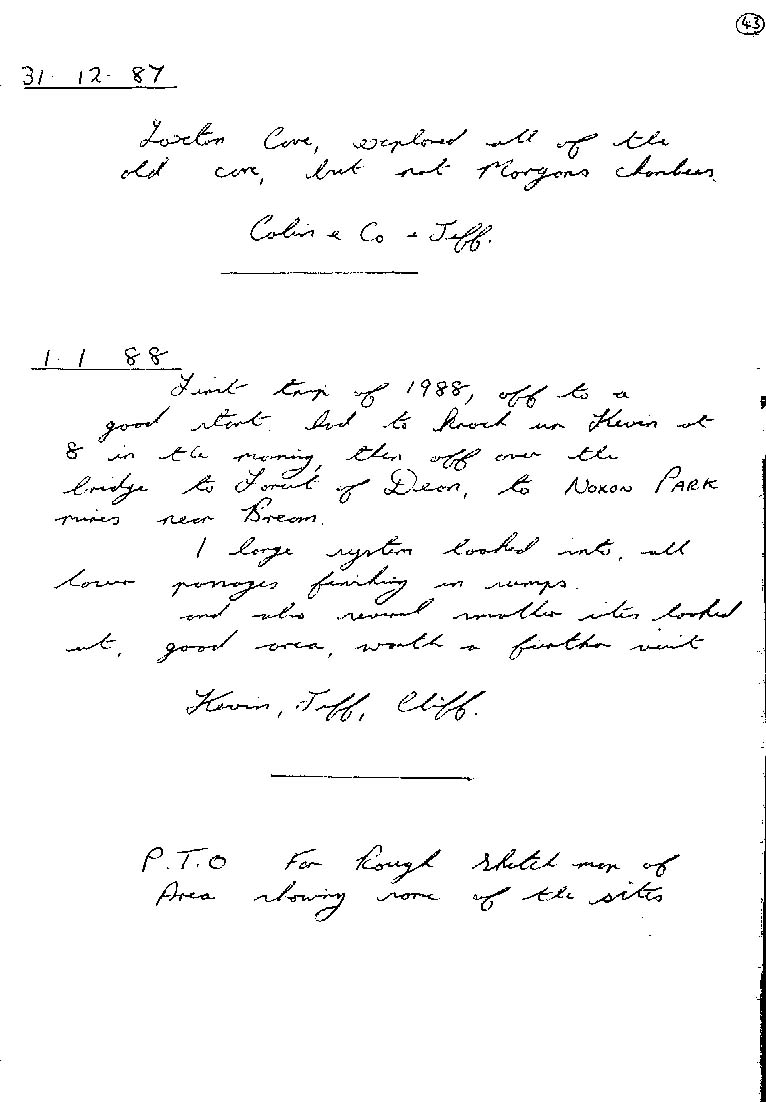 43
31. 12. 87
Loxton Cave, explored all of the
old cave, but not Morgans chambers.
Colin & Co + Jeff.
1. 1 88
First trip of 1988, off to a
good start. had to knock up Kevin at
8 in the morning, then off over the
bridge to Forest of Dean, to NOXON PARK
mines near Bream.
1 large system looked into, all
lower passages finishing in sumps.
and also several smaller sites looked
at, good area, worth a further visit
Kevin, Jeff, Cliff.
P.T.O For Rough sketch map of
Area showing some of the sites